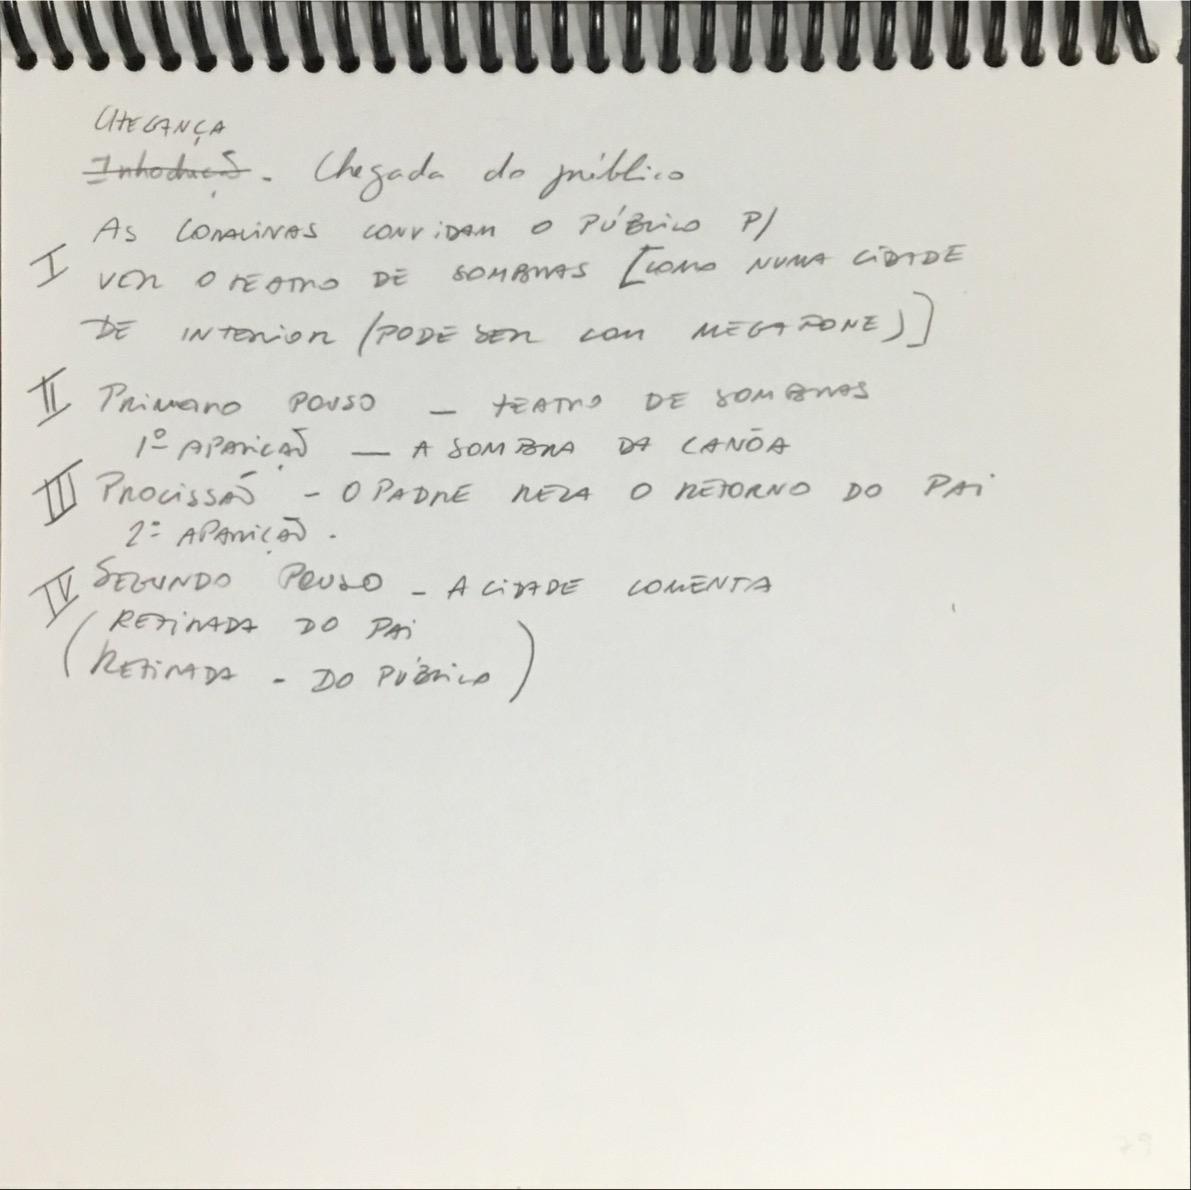 CHEGANÇA
Introdução. Chegada do público
AS CORALINAS CONVIDAM O PÚBLICO P/
I VER O TEATRO DE SOMBRAS [COMO NUMA CIDADE
DE INTERIOR (PODE SER COM MEGAFONE)]
II PRIMEIRO POUSO — TEATRO DE SOMBRAS
1º APARIÇÃO — A SOMBRA DA CANÔA
III PROCISSÃO - O PADRE REZA O RETORNO DO PAI
2º APARIÇÃO.
IV SEGUNDO POUSO - A CIDADE COMENTA
(RETIRADA DO PAI
RETIRADA - DO PÚBLICO)
29